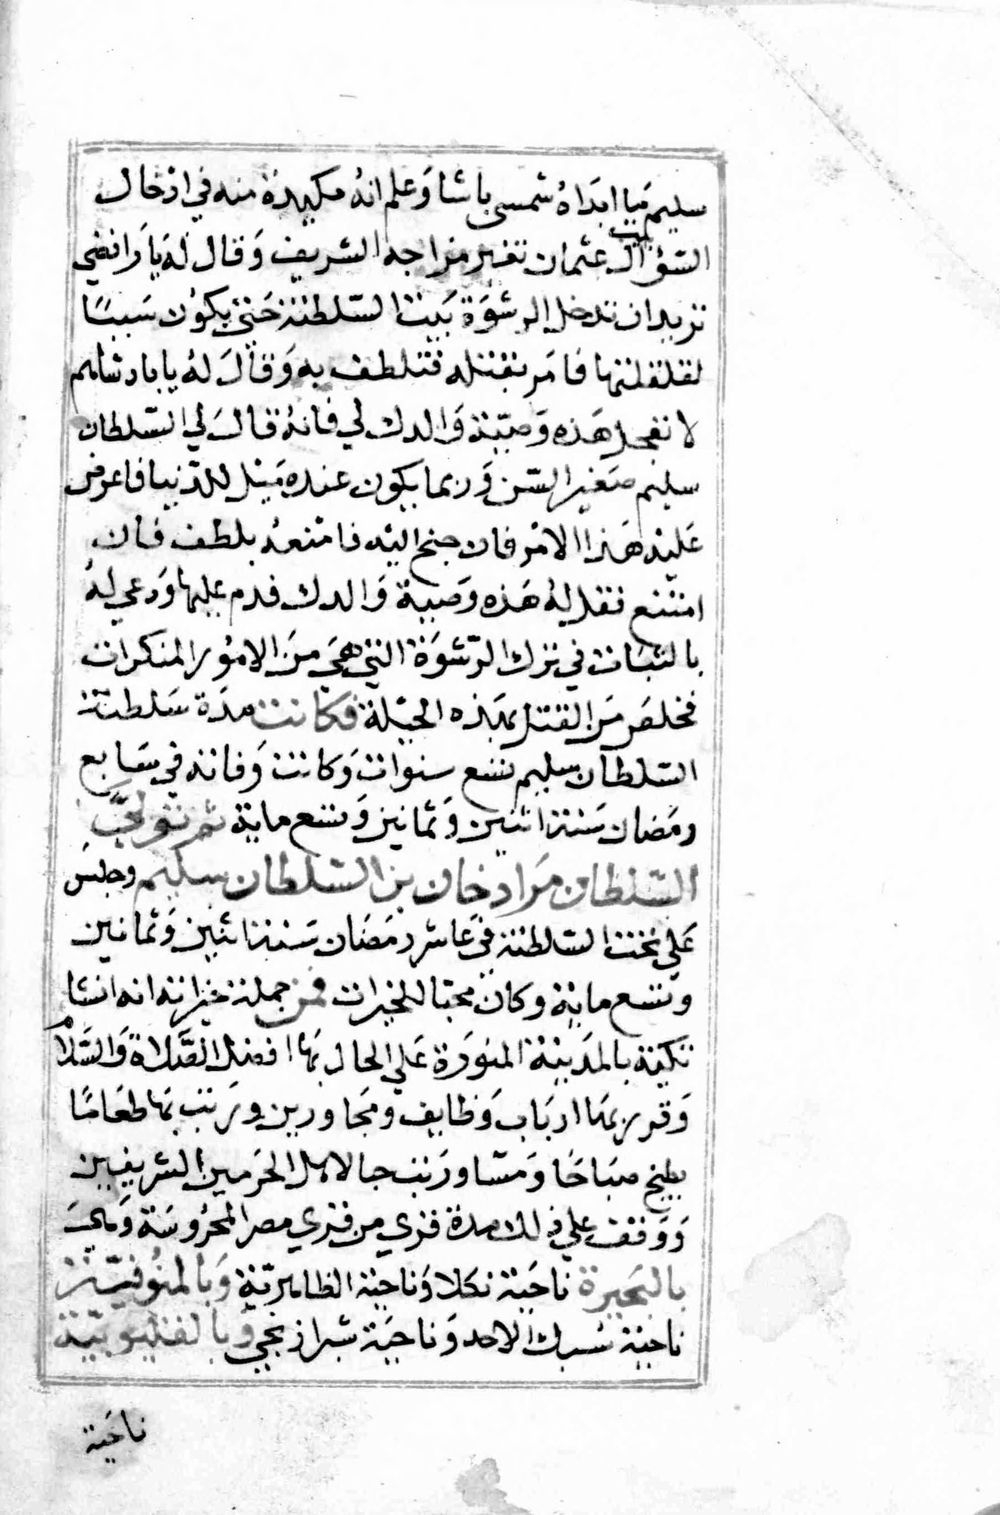 سليم ما ابداهُ شمسى باشا وَعلم انهُ مكيدة منه في ادْخال
السّوْال علي عثمان تغير مزاجه الشريف وَقال لهَ يَا رَافضي
تريد ان تدخل الرشوَة بَيت السّلطنة حَتي يكوُن سَببًا
لقلقلتها فامَر بقتله فتلطف به وَقالَ لهُ يا بادشاهم
لا تعجل هَذه وَصيّة وَالدك لي فانهُ قالَ لي السّلطان
سليم صَغير السّن وَربما يكون عنده مَيْل للدّنيا فاعرض
عَليْه هَذا الامْر فان جنح اليْه فامْنعهُ بلطف فان
امتنع فقل لهُ هَذه وَصية وَالدك فدم عليها وَدعي لهُ
بالثبَات في ترك الرّشوَة التي هيَ منَ الامُور المنكرات
فخلصَ منَ القتل بهَذه الحيْلة فكانت مدَة سَلطنَة
السّلطان سليم تسع سنوات وَكانت وَفاته في سَابع
رمَضان سَنة اثنين وَثمانين وَتسع ماية ثم توليَّ
السّلطان مرَاد خان بن السّلطان سليم وجلسَ
عَلي تخت السّلطنة في عَاشر رمَضان سَنة اثنين وَثمانين
وتسع ماية وكانَ محبًا للخيرات فمن جملة خيراته انه انشا
تكية بالمدَينة المنوَرة عَلي الحال بهَا افضل الصَّلاة وَالسَّلامْ
وَقرر بهَا اربَاب وَظايف ومجَاورين ورَتب بهَا طعَامًا
يطبخ صبَاحًا وَمسَا ورَتب حبا لاهل الحرَمين الشريفين
وَوَقف علي ذلك عدة قري من قري مصر المحرُوسَة وَهيَ
بالبَحيرة ناحيَة نكلا وَناحيَة الظاهريّة وَبالمنُوفيّة
ناحيَة سُبك الاحد وَناحيَة شبرازنجي وَبالقليُوبيّة
ناحَية